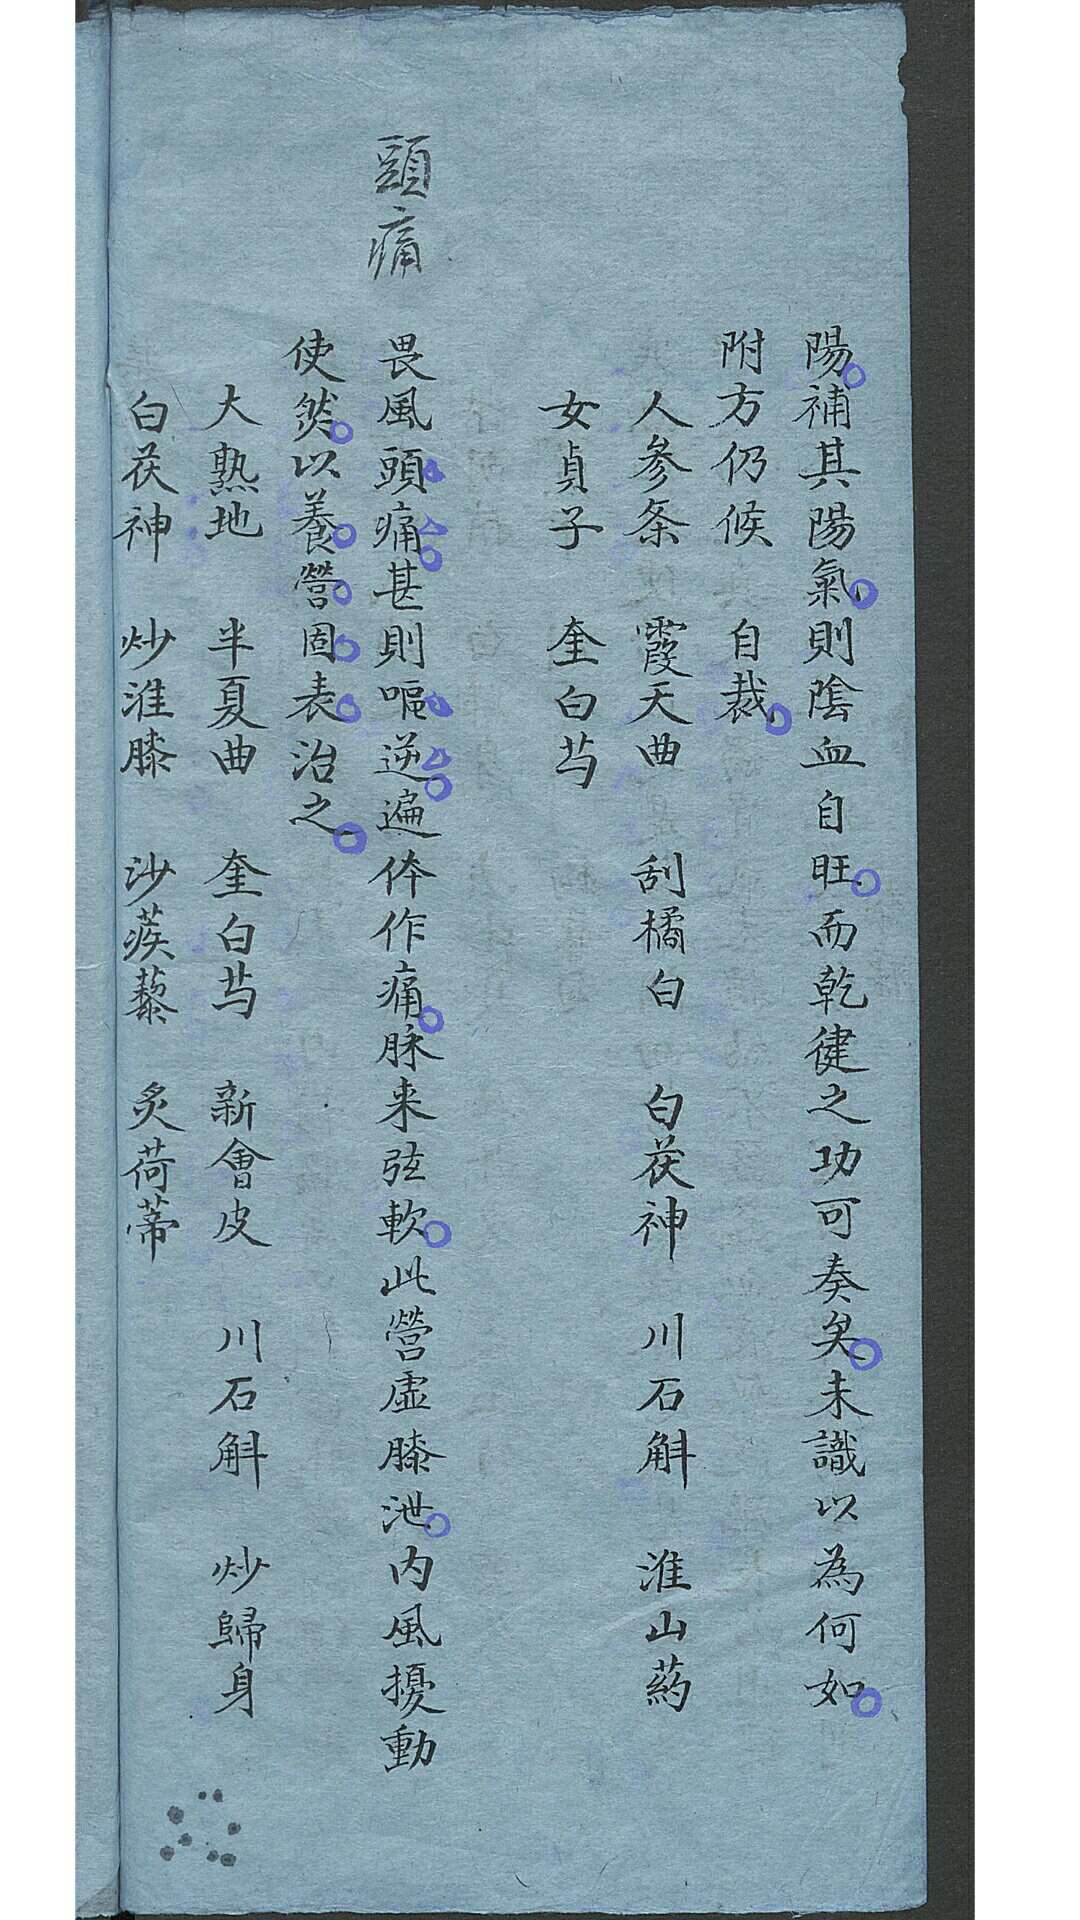 陽補其陽氣則陰血自旺而乾健之功可奏矣未識以為何如
附方仍候 自裁
人參条 霞天曲 刮橘白 白茯神 川石斛 淮山葯
女貞子 奎白芍
頭痛
畏風頭痛甚則嘔逆遍体作痛脉来弦軟此營虛膝泄内風擾動
使然以養營固表治之
大熟地 半夏曲 奎白芍 新會皮 川石斛 炒歸身
白茯神 炒淮膝 沙蒺藜 炙荷蒂